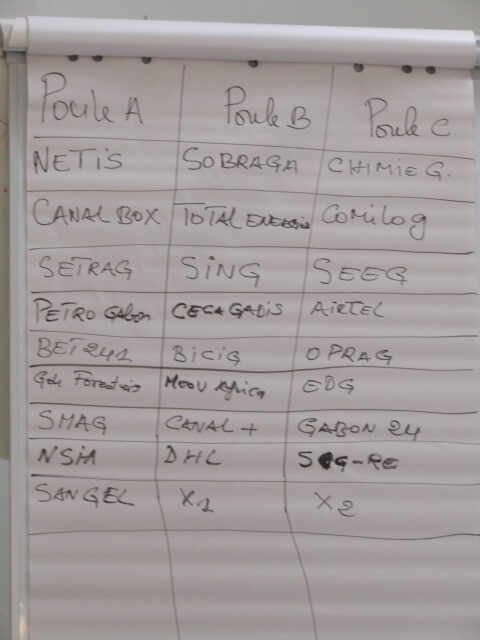 Poule A Poule B Poule C
NETIS SOBRAGA CHIMIE G.
CANAL BOX TOTAL ENERGIE COMILOG
SETRAG SING SEEG
PETRO Gabon CECA GADIS AIRTEL
BET241 BICIG OPRAG
Moov Africa EDG
SMAG CANAL + GABON 24
NSIA DHL SCG-RE
SANGEL X1 X2